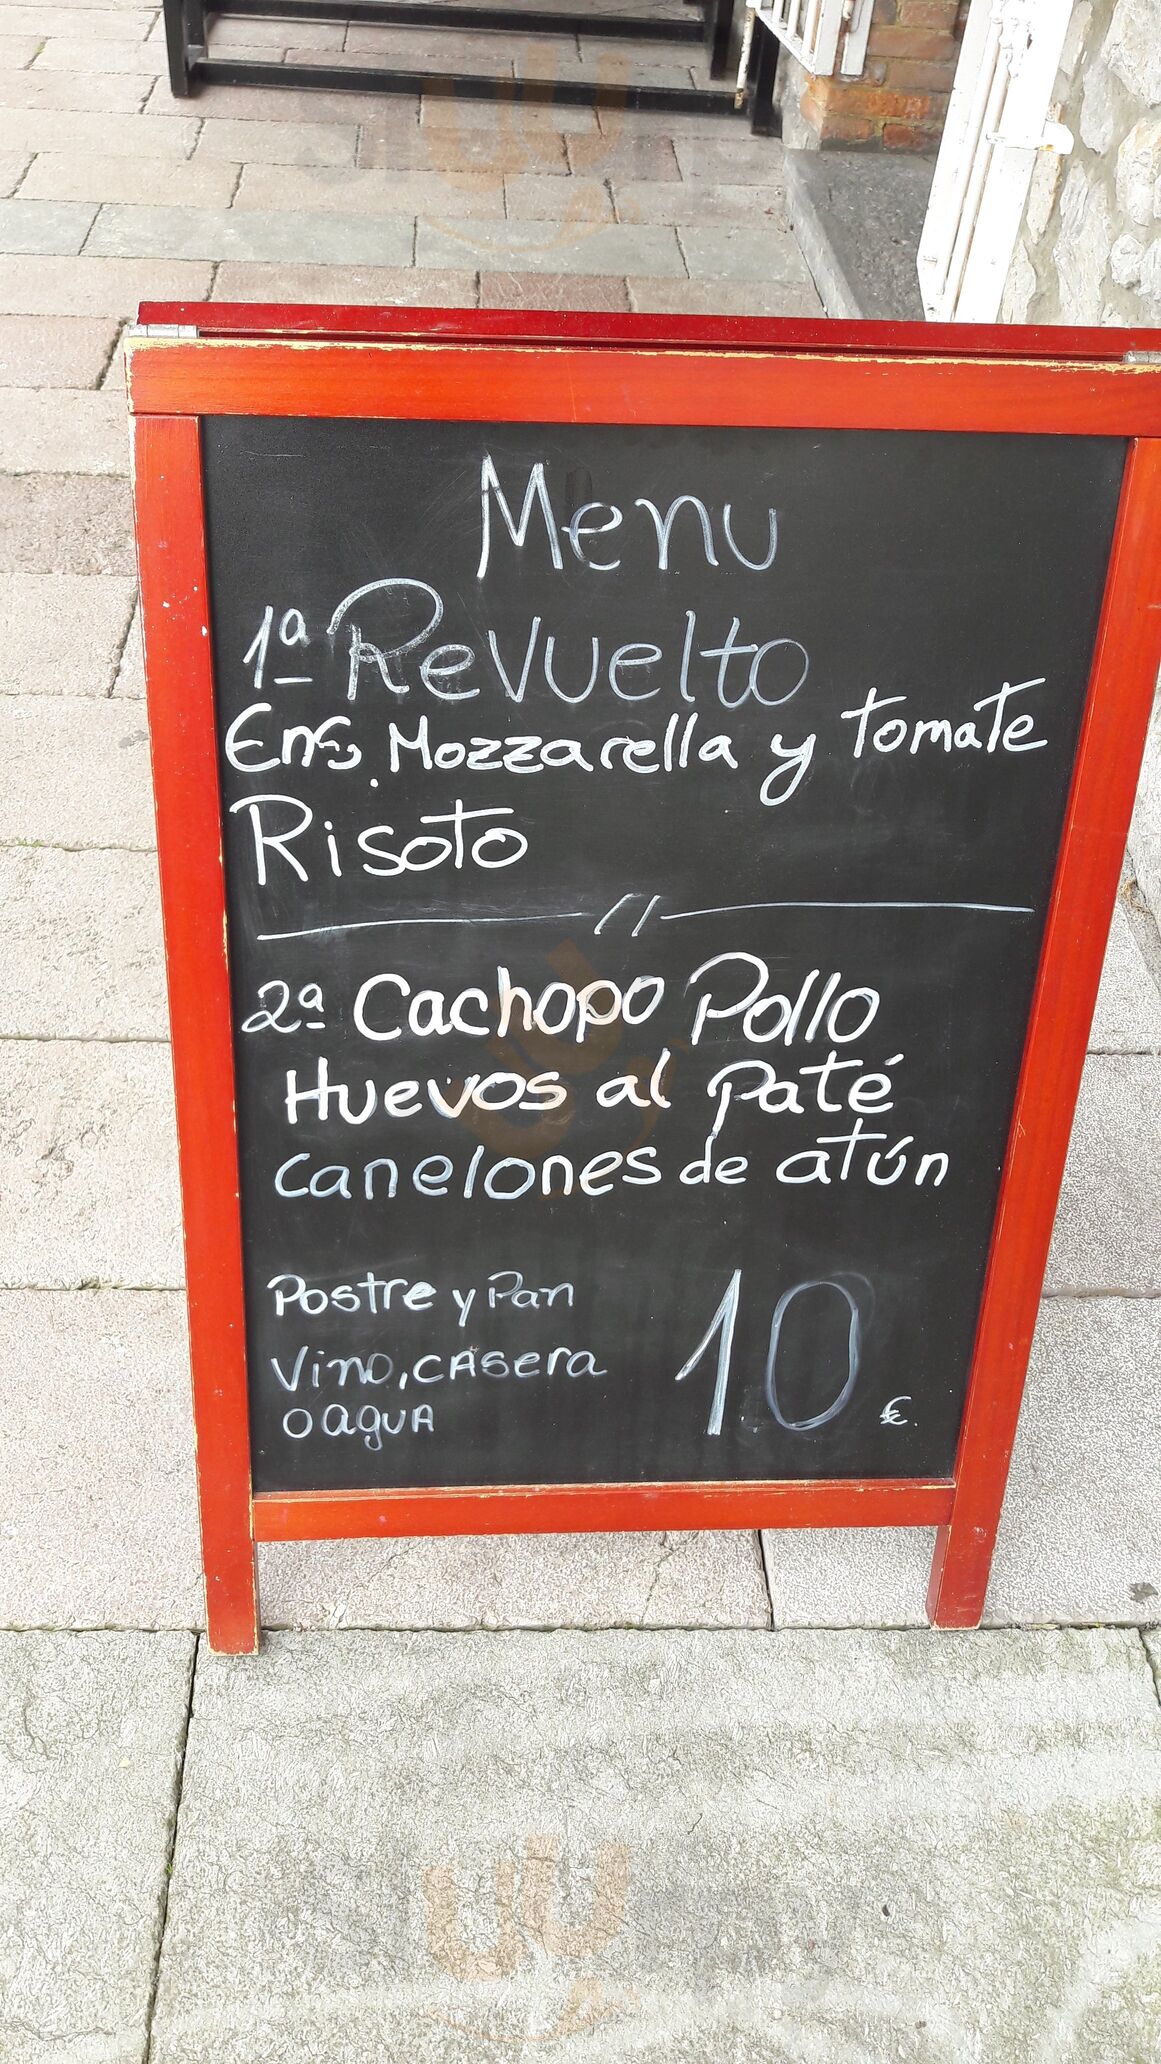 Menu
1ª Revuelto
Ens. Mozzarella y tomate
Risoto
2ª Cachopo Pollo
Huevos al Paté
canelones de atún
Postre y Pan
Vino, CASera
O agUA
10 €.